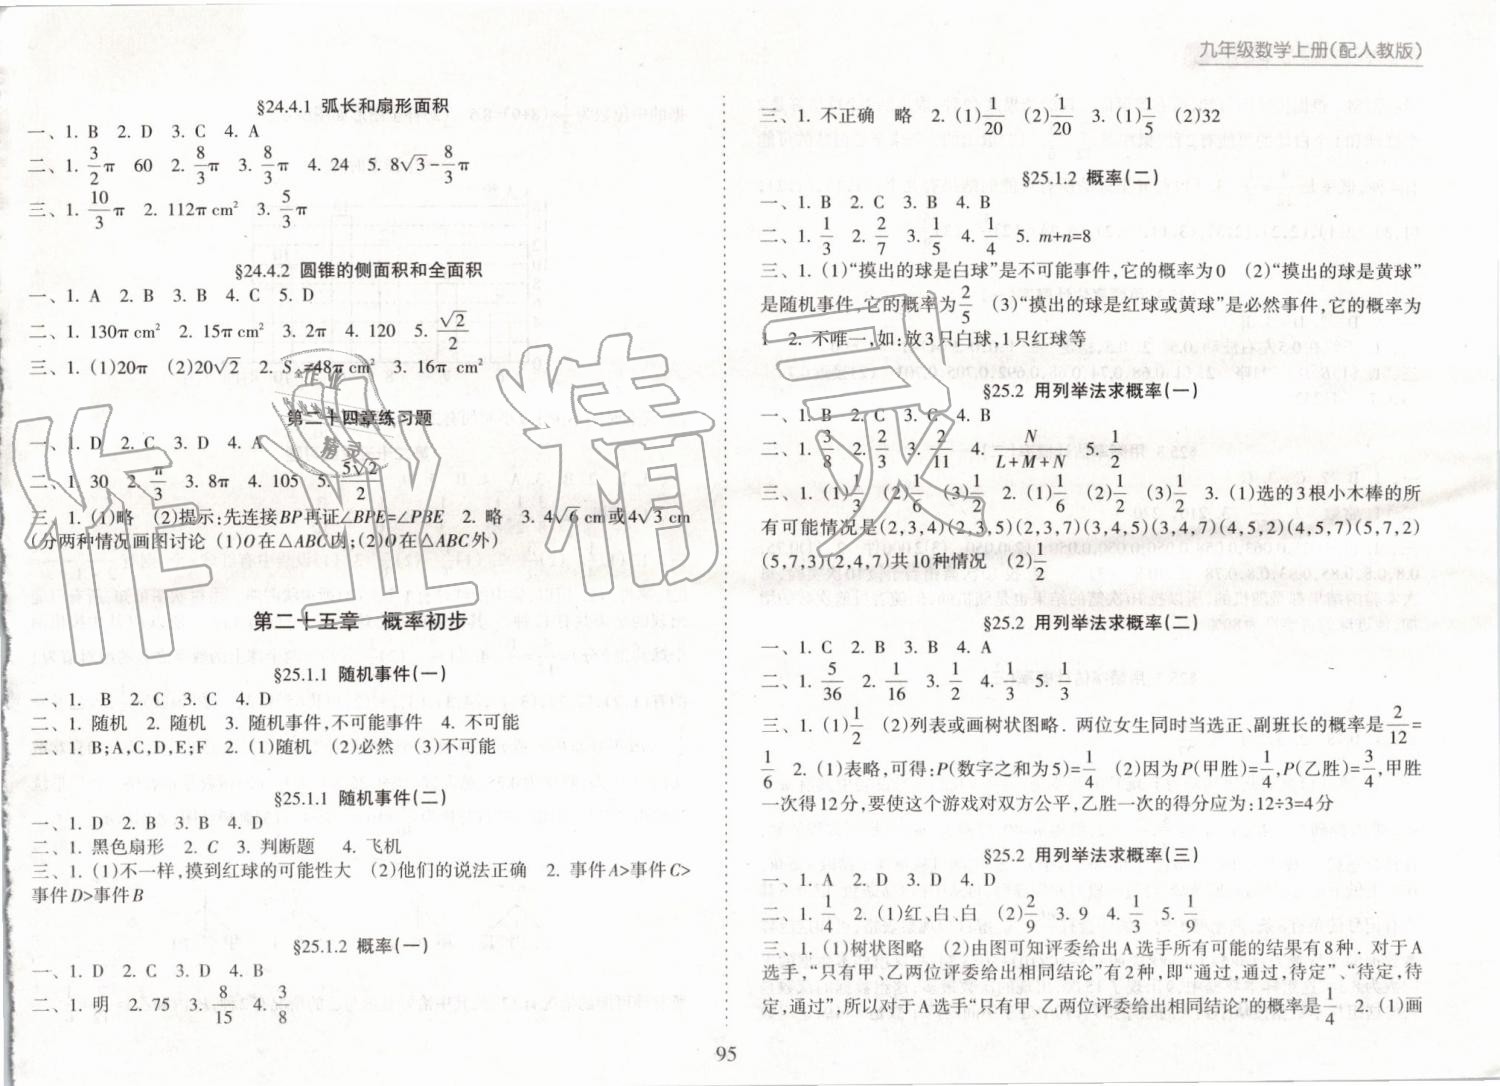 九年级数学上册(配人教版)
§24.4.1 弧长和扇形面积
一、1. B 2. D 3. C 4. A
二、1. 3/2π 60 2. 8/3π 3. 8/3π 4. 24 5. 8√3-8/3π
三、1. 10/3π 2. 112π cm² 3. 5/3π
§24.4.2 圆锥的侧面积和全面积
一、1. A 2. B 3. B 4. C 5. D
二、1. 130π cm² 2. 15π cm² 3. 2π 4. 120 5. √2/2
三、1. (1)20π (2)20√2 2. S =48π cm² 3. 16π cm²
第二十四章练习题
一、1. D 2. C 3. D 4. A
二、1. 30 2. π/3 3. 8π 4. 105 5. 5√2/2
三、1. (1)略 (2)提示:先连接BP再证∠BPE=∠PBE 2. 略 3. 4√6 cm或4√3 cm
(分两种情况画图讨论 (1)O在△ABC内;(2)O在△ABC外)
第二十五章 概率初步
§25.1.1 随机事件(一)
一、1. B 2. C 3. C 4. D
二、1. 随机 2. 随机 3. 随机事件,不可能事件 4. 不可能
三、1. B;A,C,D,E;F 2. (1)随机 (2)必然 (3)不可能
§25.1.1 随机事件(二)
一、1. D 2. B 3. B 4. D
二、1. 黑色扇形 2. C 3. 判断题 4. 飞机
三、1. (1)不一样,摸到红球的可能性大 (2)他们的说法正确 2. 事件A>事件C>
事件D>事件B
§25.1.2 概率(一)
一、1. D 2. C 3. D 4. B
二、1. 明 2. 75 3. 8/15 4. 3/8
三、1. 不正确 略 2. (1)1/20 (2)1/20 3. (1)1/5 (2)32
§25.1.2 概率(二)
一、1. B 2. C 3. B 4. B
二、1. 1/3 2. 2/7 3. 1/5 4. 1/4 5. m+n=8
三、1. (1)“摸出的球是白球”是不可能事件,它的概率为0 (2)“摸出的球是黄球”
是随机事件,它的概率为2/5 (3)“摸出的球是红球或黄球”是必然事件,它的概率为
1 2. 不唯一,如:放3只白球,1只红球等
§25.2 用列举法求概率(一)
一、1. B 2. C 3. C 4. B
二、1. 3/8 2. 2/3 3. 2/11 4. N/(L+M+N) 5. 1/2
三、1. (1)1/3 (2)1/6 (3)1/2 2. (1)1/6 (2)1/2 (3)1/2 3. (1)选的3根小木棒的所
有可能情况是(2,3,4)(2,3,5)(2,3,7)(3,4,5)(3,4,7)(4,5,2)(4,5,7)(5,7,2)
(5,7,3)(2,4,7)共10种情况 (2)1/2
§25.2 用列举法求概率(二)
一、1. C 2. B 3. B 4. A
二、1. 5/36 2. 1/16 3. 1/2 4. 1/3 5. 1/3
三、1. (1)1/2 (2)列表或画树状图略. 两位女生同时当选正、副班长的概率是2/12=
1/6 2. (1)表略,可得:P(数字之和为5)=1/4 (2)因为P(甲胜)=1/4,P(乙胜)=3/4,甲胜
一次得12分,要使这个游戏对双方公平,乙胜一次的得分应为:12÷3=4分
§25.2 用列举法求概率(三)
一、1. A 2. D 3. D 4. D
二、1. 1/4 2. (1)红、白、白 (2)2/9 3. 9 4. 1/3 5. 1/9
三、1. (1)树状图略 (2)由图可知评委给出A选手所有可能的结果有8种. 对于A
选手,“只有甲、乙两位评委给出相同结论”有2种,即“通过,通过,待定”、“待定,待
定,通过”,所以对于A选手“只有甲、乙两位评委给出相同结论”的概率是1/4 2. (1)画
95
作业精灵
作业
精灵